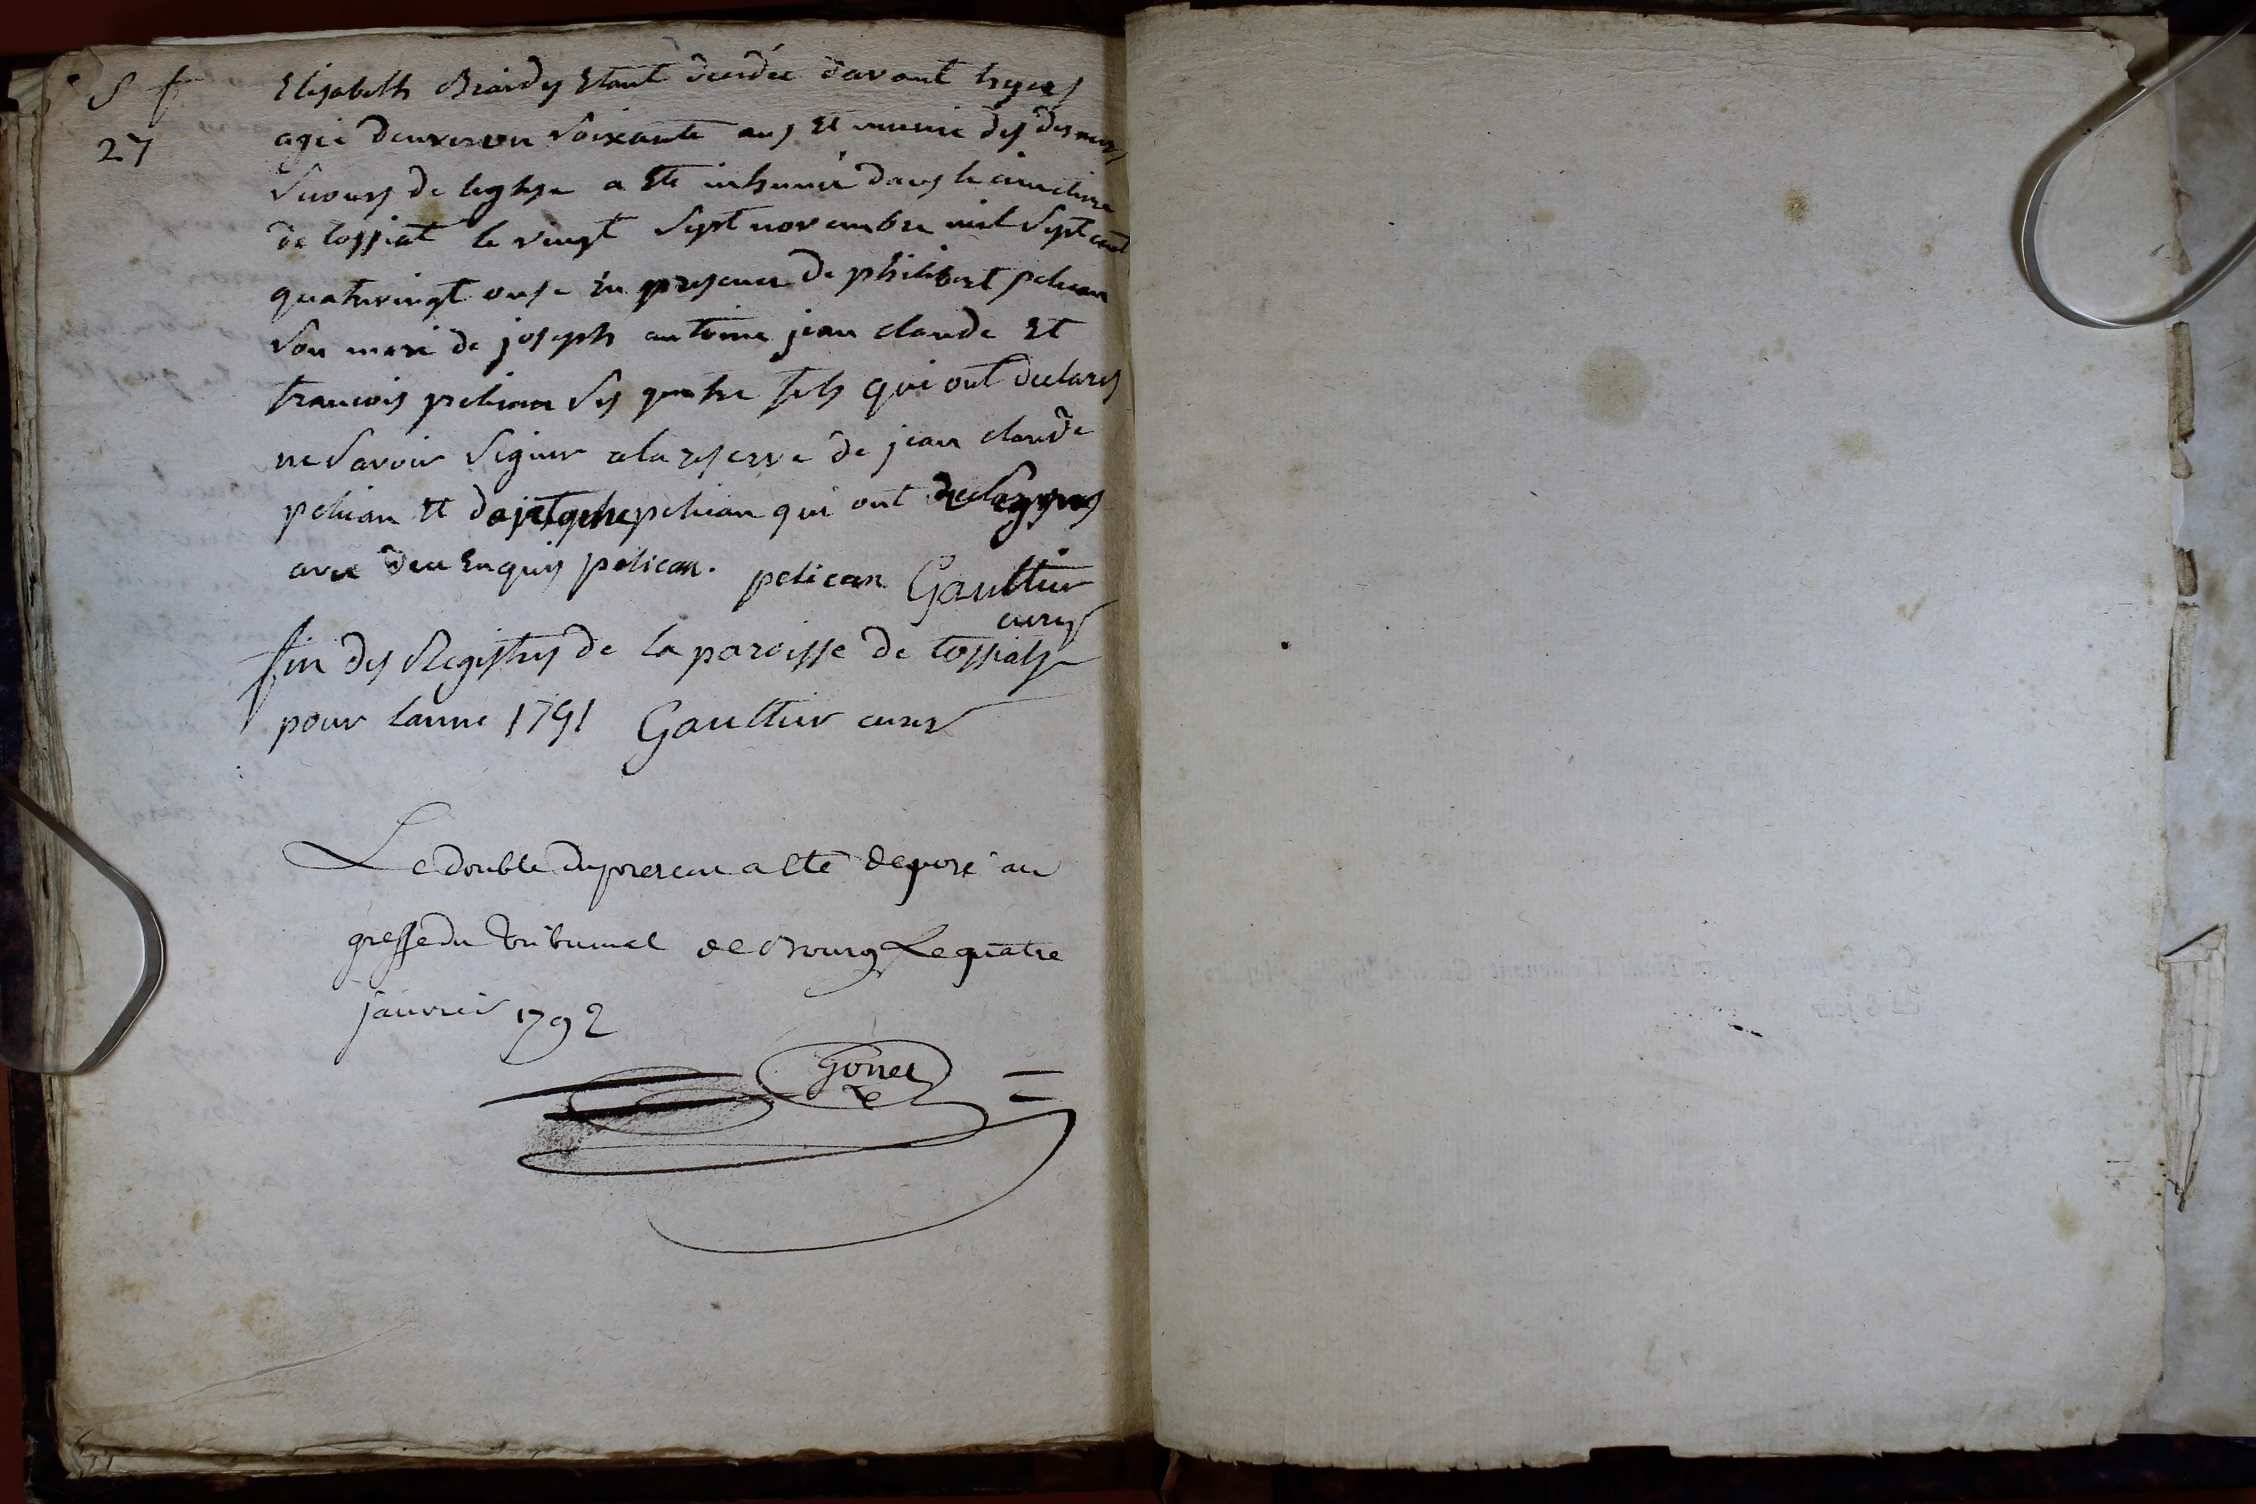 S f
27
Elisabeth Brardy Etant decedée davant hyer
agée denviron Soixante ans Et munie des derniers
Secours de leglise a Ete inhumée dans le cimetiere
de tossiat le vingt Sept novembre mil Sept cent
quatrevingt onse En presence de philibert pelican
Son mari de joseph antoine jean claude Et
francois pelican Ses quatre fils qui ont declarés
ne Savoir Signer a la reserve de jean claude
pelican Et de pelican qui ont
avec Enquis pelican. pelican Gaultier
curé
fin des Registres de la paroisse de tossiat
pour lanne 1791 Gaultier curé
Le double du present a été deposé au
greffe du tribunal de Bourg Le quatre
janvier 1792
Gonet